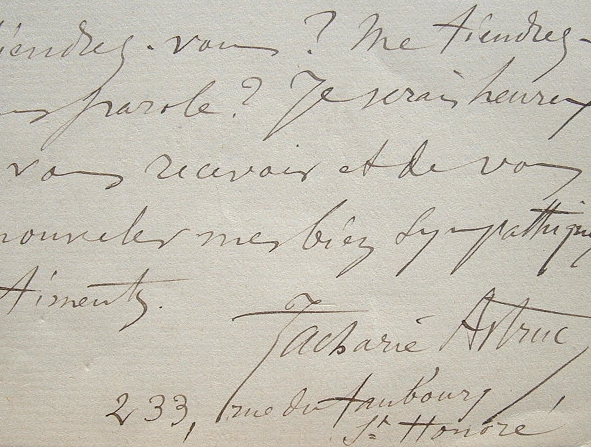 iendrez-vous? Me tiendrez-
us parole? Je serais heureux
vous recevoir et de vous
nouveler mes bien sympathiques
timents.
Zacharie Astruc
233, rue du faubourg
St Honoré